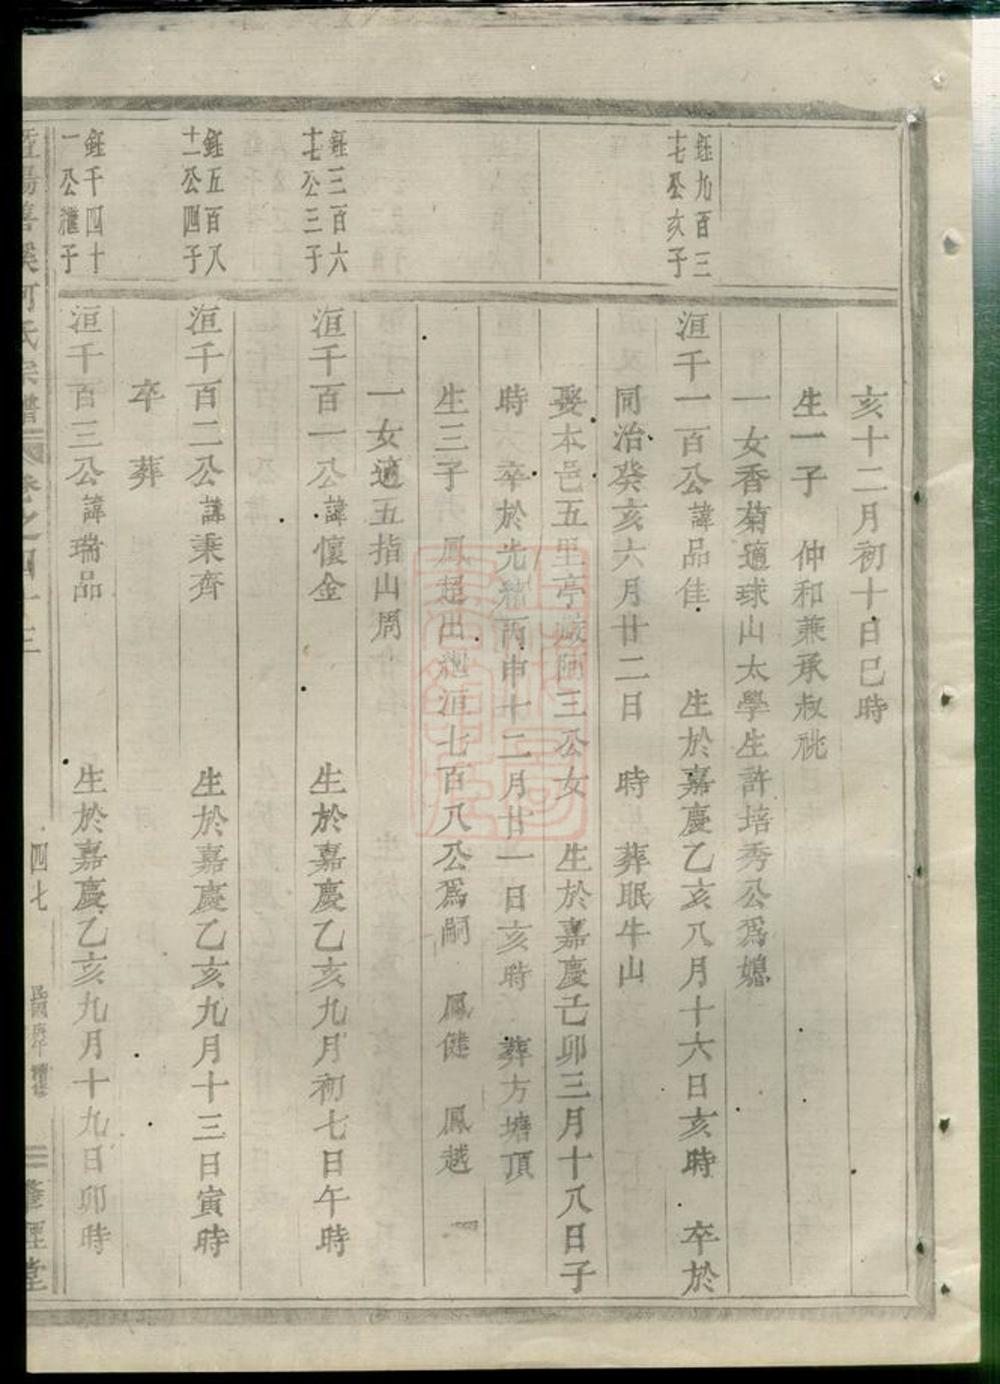 亥十二月初十日巳時
生一子 仲和兼承叔祧
一女香菊適球山太學生許培秀公爲媳
鈺九百三
十七公亥子
洹千一百公諱品佳 生於嘉慶乙亥八月十六日亥時 卒於
同治癸亥六月廿二日 時 葬眠牛山
娶本邑五里亭 三公女 生於嘉慶己卯三月十八日子
時 卒於光緒丙申十二月廿一日亥時 葬方塘頂
生三子 鳳超出繼洹七百八公爲嗣 鳳健 鳳越
一女適五指山周
鈺三百六
十七公三子
洹千百一公諱懷金 生於嘉慶乙亥九月初七日午時
鈺五百八
十二公四子
洹千百二公諱秉齊 生於嘉慶乙亥九月十三日寅時
卒 葬
鈺千四十
一公繼子
洹千百三公諱瑞品 生於嘉慶乙亥九月十九日卯時
暨陽 溪何氏宗譜 卷之四十三 四七 民國 肇經堂